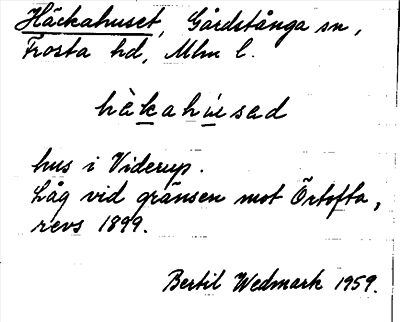 Häckahuset, Gårdstånga sn,
Frosta hd, Mlm l.
hàkahúsad
hus i Viderup.
Låg vid gränsen mot Örtofta,
revs 1899.
Bertil Wedmark 1959.